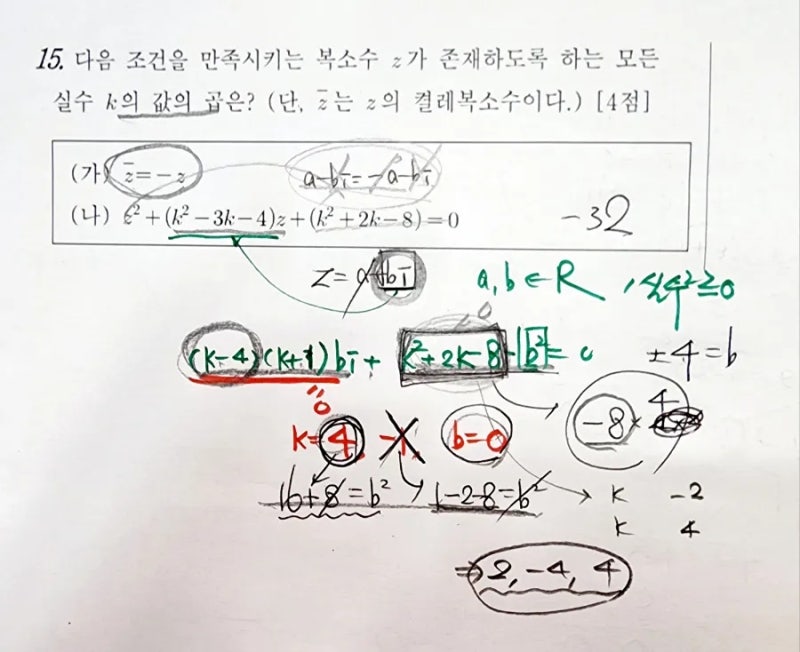 15. 다음 조건을 만족시키는 복소수 z가 존재하도록 하는 모든
실수 k의 값의 곱은? (단, z̄는 z의 켤레복소수이다.) [4점]
(가) z̄=-z a-bi=-a-bi
(나) z²+(k²-3k-4)z+(k²+2k-8)=0 -32
z=a+bi a,b∈R , 실수²≥0
0
(k-4)(k+1)bi+ k²+2k-8-b²=0 ±4=b
=0
-8×4
k=4, -1 b=0
16+8-8=b² 1-2-8=b² → k -2
k 4
⇒2,-4,4